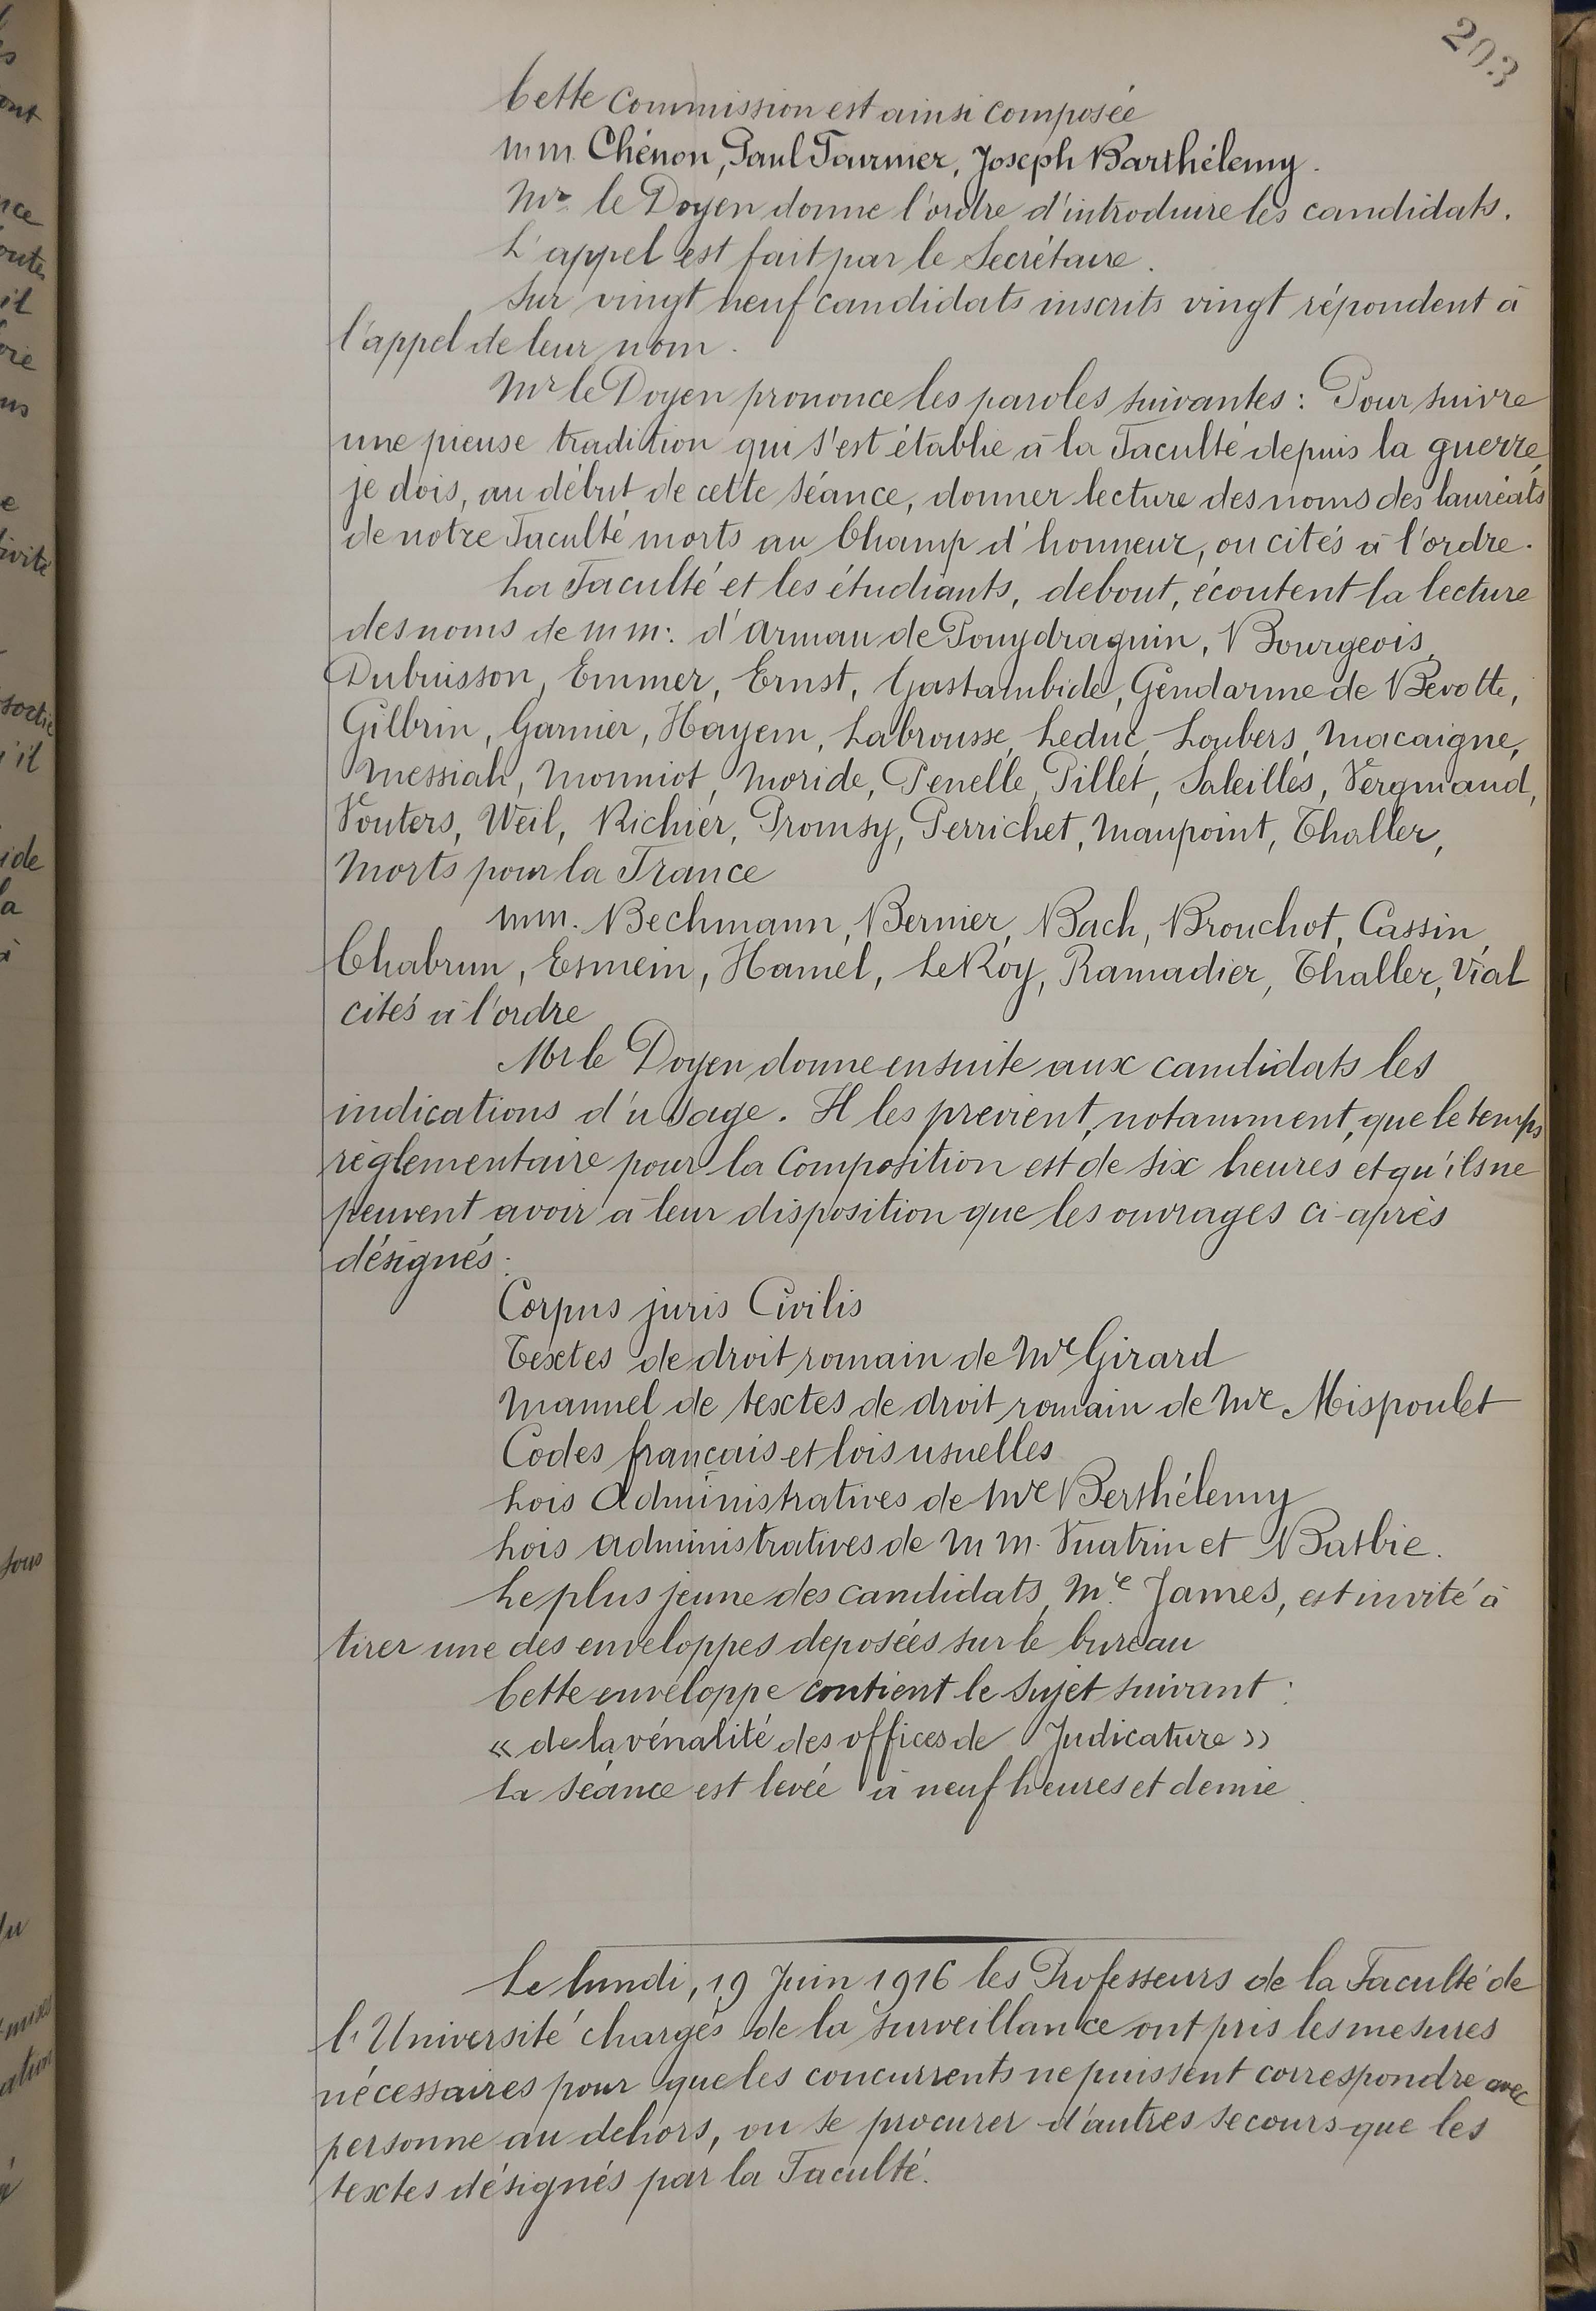 203
Cette Commission est ainsi composée
MM. Chénon, Paul Fournier, Joseph Barthélemy.
Mr le Doyen donne l'ordre d'introduire les candidats.
L'appel est fait par le Secrétaire.
Sur vingt neuf candidats inscrits vingt répondent à
l'appel de leur nom.
Mr le Doyen prononce les paroles suivantes : Pour suivre
une pieuse tradition qui s'est établie à la Faculté depuis la guerre,
je dois, au début de cette séance, donner lecture des noms des lauréats
de notre Faculté morts au Champ d'honneur, ou cités à l'ordre.
La Faculté et les étudiants, debout, écoutent la lecture
des noms de MM. d'Arman de Pouydraguin, Bourgeois,
Dubuisson, Emmer, Ernst, Gastambide, Gendarme de Bévotte,
Gilbrin, Garnier, Hayem, Labrousse, Leduc, Loubers, Macaigne,
Messiah, Monniot, Moride, Penelle, Pillet, Saleilles, Vergniaud,
Vouters, Weil, Richier, Promsy, Perrichet, Maupoint, Thaller,
Morts pour la France
MM. Bechmann, Bernier, Bach, Brouchot, Cassin,
Chabrun, Esmein, Hamel, Le Roy, Ramadier, Thaller, Vial
cités à l'ordre
Mr le Doyen donne ensuite aux candidats les
indications d'usage. Il les prévient, notamment, que le temps
règlementaire pour la Composition est de six heures et qu'ils ne
peuvent avoir à leur disposition que les ouvrages ci-après
désignés :
Corpus juris Civilis
Textes de droit romain de Mr Girard
Manuel de textes de droit romain de Mr Mispoulet
Codes français et lois usuelles
Lois Administratives de Mr Berthélemy
Lois administratives de MM. Vuatrin et Batbie.
Le plus jeune des candidats, Mr James, est invité à
tirer une des enveloppes deposées sur le bureau
Cette enveloppe contient le sujet suivant :
« de la vénalité des offices de Judicature »
La séance est levée à neuf heures et demie.
Le lundi, 19 Juin 1916 les Professeurs de la Faculté de
l'Université chargés de la surveillance ont pris les mesures
nécessaires pour que les concurrents ne puissent correspondre avec
personne au dehors, ou se procurer d'autres secours que les
textes désignés par la Faculté.